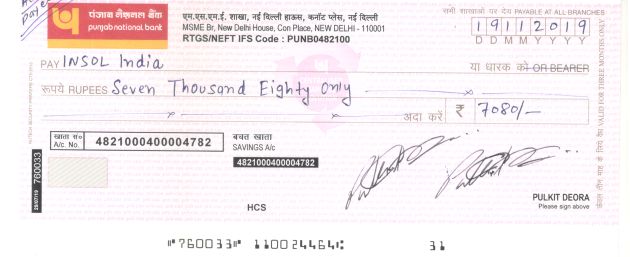 A/c
payee
पंजाब नैशनल बैंक
punjab national bank
एम.एस.एम.ई. शाखा, नई दिल्ली हाऊस, कनॉट प्लेस, नई दिल्ली
MSME Br, New Delhi House, Con Place, NEW DELHI - 110001
RTGS/NEFT IFS Code : PUNB0482100
सभी शाखाओं पर देय PAYABLE AT ALL BRANCHES
1 9 1 1 2 0 1 9
D D M M Y Y Y Y
PAY INSOL India
या धारक को OR BEARER
रूपये RUPEES Seven Thousand Eighty Only
अदा करें ₹ 7080/-
खाता सं० A/c. No. 4821000400004782
बचत खाता
SAVINGS A/c
4821000400004782
HCS
PULKIT DEORA
Please sign above
VALID FOR THREE MONTHS ONLY
760033
29/07/19
⑈760033⑈ 110024464⑆ 31